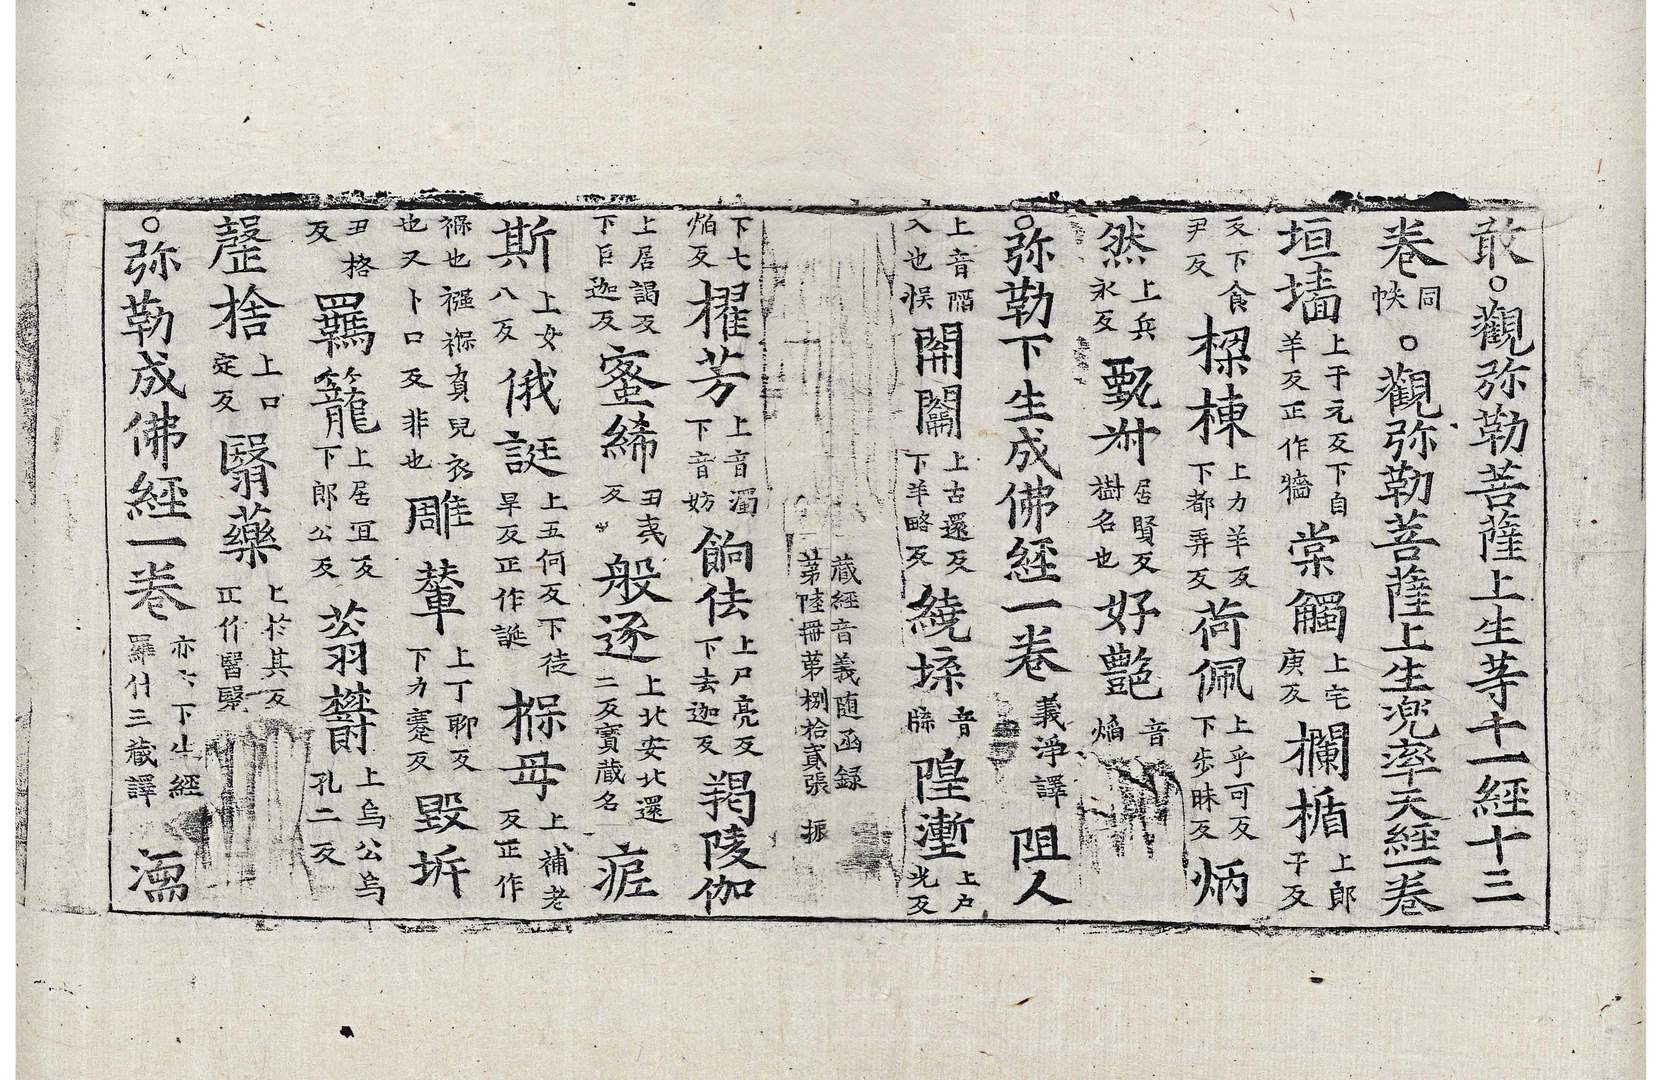 敢○觀弥勒菩薩上生等十一經十三
卷同帙○觀弥勒菩薩上生兜率天經一卷
垣墻上于元反下自羊反正作牆棠觸上宅庚反欄楯上郎干反
反下食尹反樑棟上力羊反下都弄反荷佩上乎可反下步昧反炳
然上兵永反甄叔居賢反樹名也好艷音焰
○弥勒下生成佛經一卷義淨譯阻人
上音陋入也悮開闢上古還反下羊略反繞垛音隊隍壍上戶光反
藏經音義随函録
苐陸冊苐捌拾貳張 振
下七焰反櫂芳上音濁下音妨餉佉上尸亮反下去迦反羯陵伽
上居謁反下巨迦反蜜絺丑夷反般逐上北安北還二反寳藏名疟
斯上女八反俄誔上五何反下徒旱反正作誕褓母上補老反正作
褓也襁褓負兒衣也又卜口反非也雕輦上丁聊反下力蹇反毀坼
丑格反羈籠上居冝反下郎公反蓊欝上烏公烏孔二反
磬捨上口定反翳藥上於其反正作醫醫
○弥勒成佛經一卷亦云下生經羅什三藏譯濡